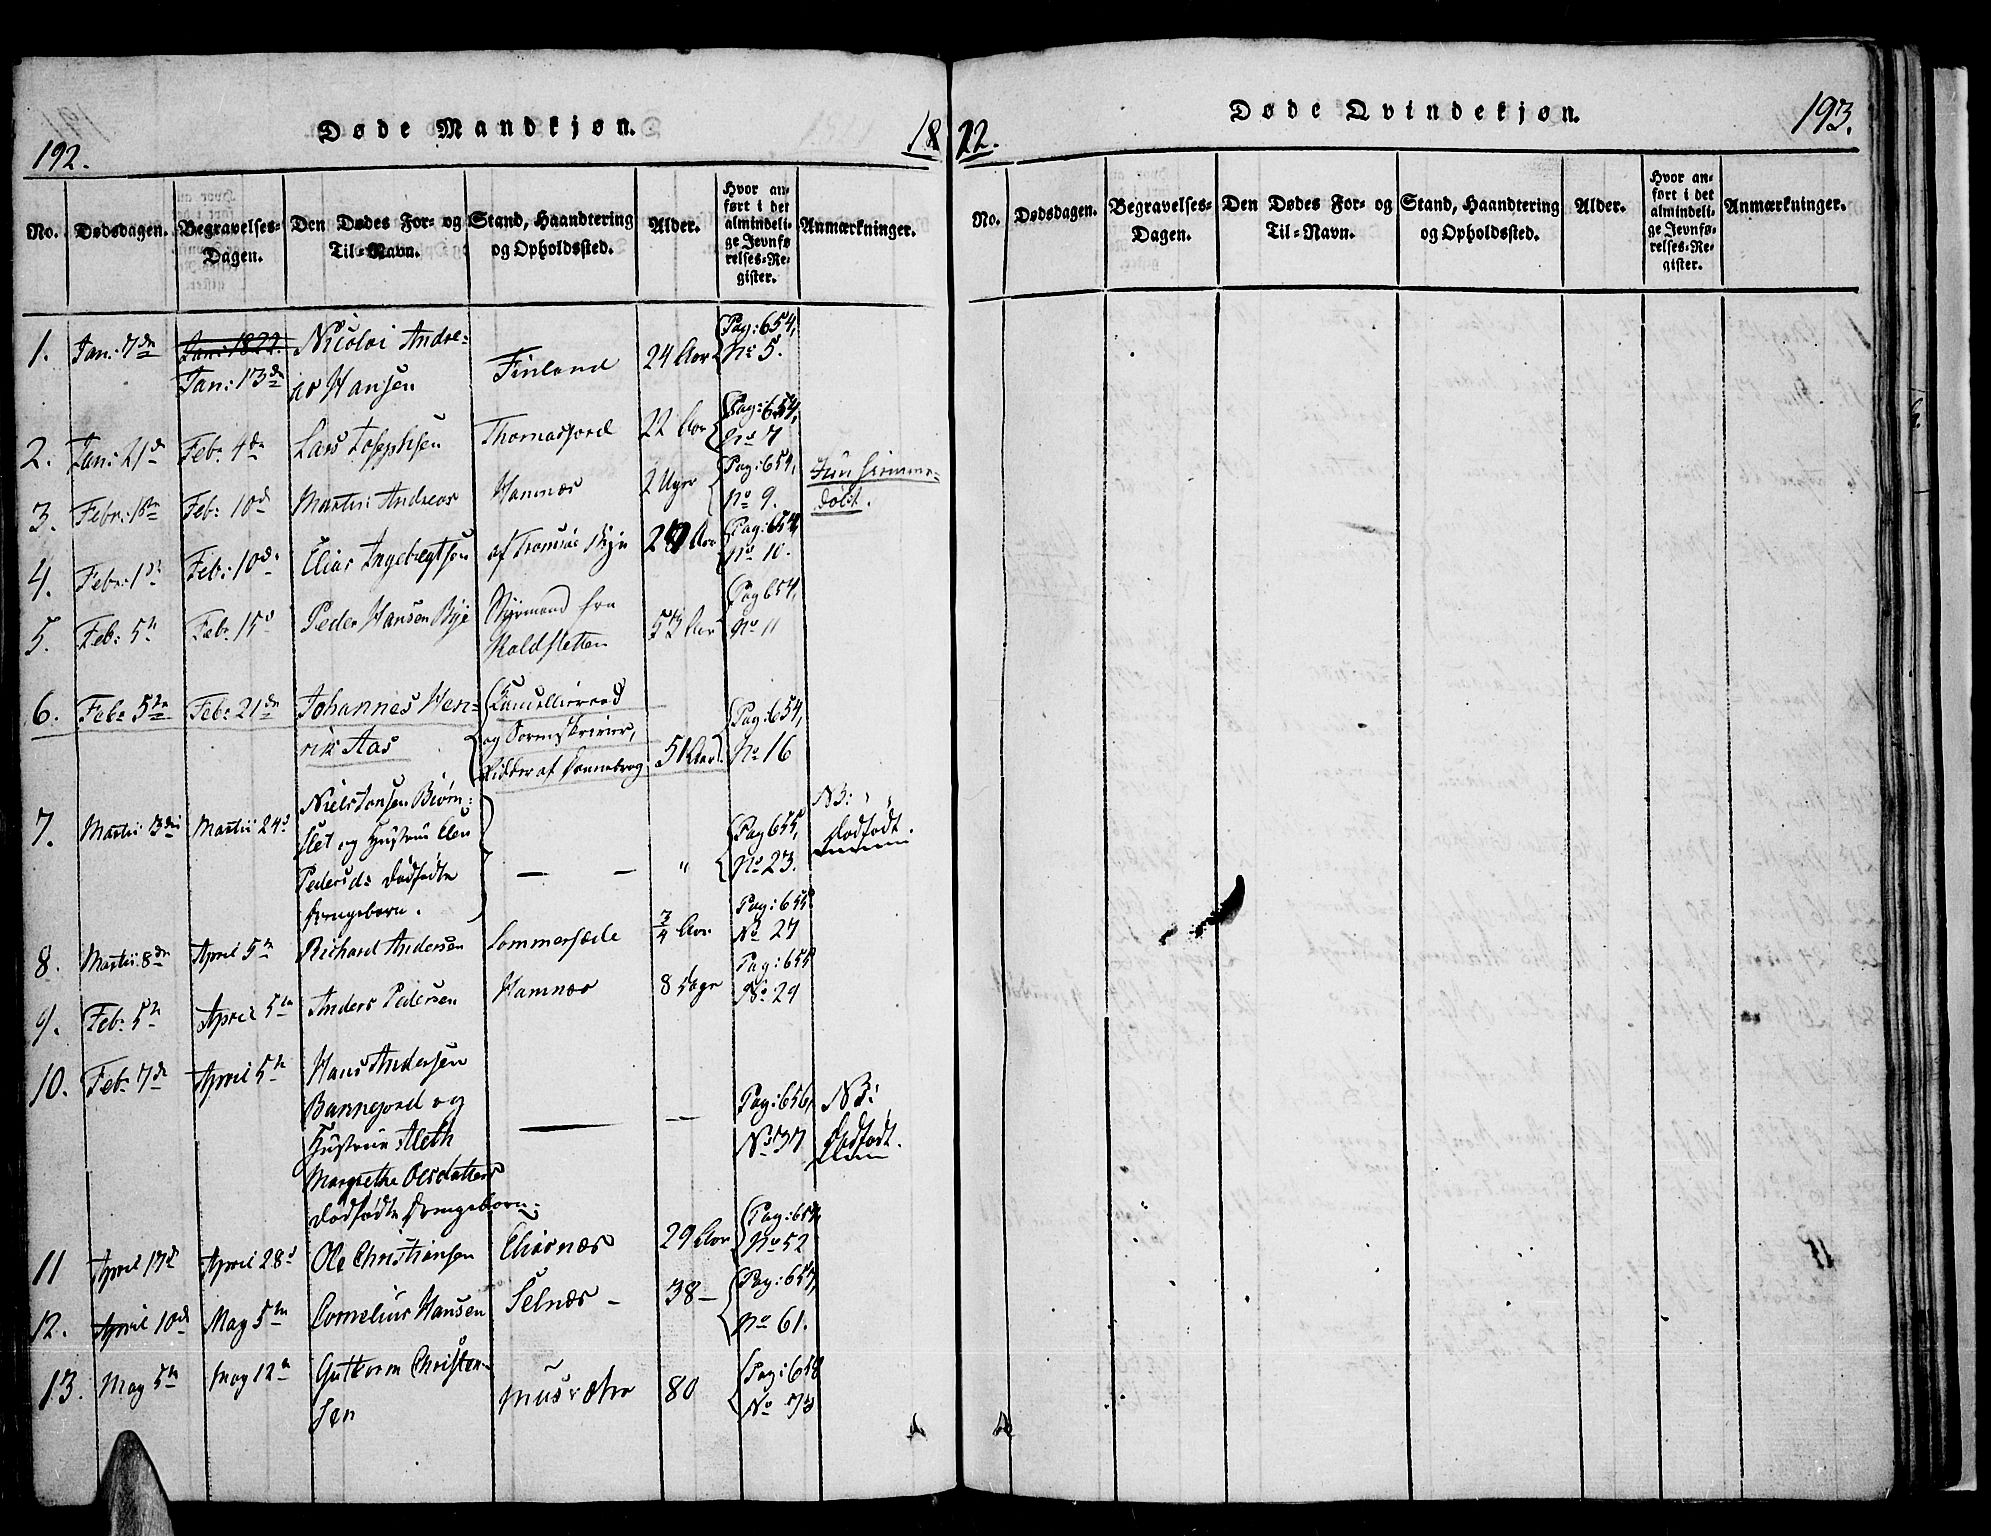 192.
Døde Mandkjøn.
18
No.
Dødsdagen.
Begravelses-
Dagen.
Den Dødes For- og
Til-Navn.
Stand, Haandtering
og Opholdssted.
Alder.
Hvor an-
ført i det
almindeli-
ge Jevnfø
relses-Re-
gister.
Anmærkninger.
1. Jan: 7de
Jan: 1822.
Jan: 13de
Nicolai Andre-
as Hansen
Finland
24 Aar
Pag: 654,
No 5.
2. Jan: 21de
Feb: 4de
Lars Josephsen
Thomasjord
22 Aar
Pag: 654,
No 7
3. Febr:
Feb: 10de
Martin Andreas
Hamnæs
2 Uger
Pag: 654,
No 9.
døbt.
4. Febr: 1
Feb: 10de
Elias Ingebregtsen
af Tromsøe
Aar
Pag: 654,
No 10.
5. Feb: 5te
Feb: 15de
Peder Hansen Bye
Styrmand fra
53 Aar
Pag 654,
No 11
6. Feb: 5te
Feb: 21de
Johannes Hen-
rik Aas
Cancelliraad
og Sorenskriver,
Ridder af Dannebrog
51 Aar.
Pag: 654,
No 16
7. Martii 3die
Martii 24de
Niels Jonsen
og Hustrue Elen
Pedersd: dødfødte
Drengebarn.
— — "
Pag 655,
No 23.
NB:
Dødfødt.
8. Martii 8de
April 5te
Richard Andersen
Sommersæde
3/4 Aar
Pag: 655
No 27
9. Feb: 5te
April 5te
Anders Pedersen
Hamnæs
8 Dage
Pag: 655
No 29
10. Feb: 7de
April 5te
Hans Andersen
og
Hustrue Aleth
Margrethe Olsdatters
dødfødte Drengebarn.
— —
Pag: 656,
No 37
NB:
Dødfødt.
11 April 17de
April 28de
Ole Christiansen
29 Aar
Pag: 657,
No 52
12. April 10de
May 5te
Cornelius Hansen
Selnæs –
38 –
Pag: 657,
No 61.
13. May 5te
May 12te
Guttorm Christen-
sen
Musvær
80
Pag: 658
No 73
22.
Døde Qvindekjøn.
193.
No.
Dødsdagen.
Begravelses-
Dagen.
Den Dødes For- og
Til-Navn.
Stand, Haandtering
og Opholdssted.
Alder.
Hvor an-
ført i det
almindeli-
ge Jevnfø-
relses-Re-
gister.
Anmærkninger.